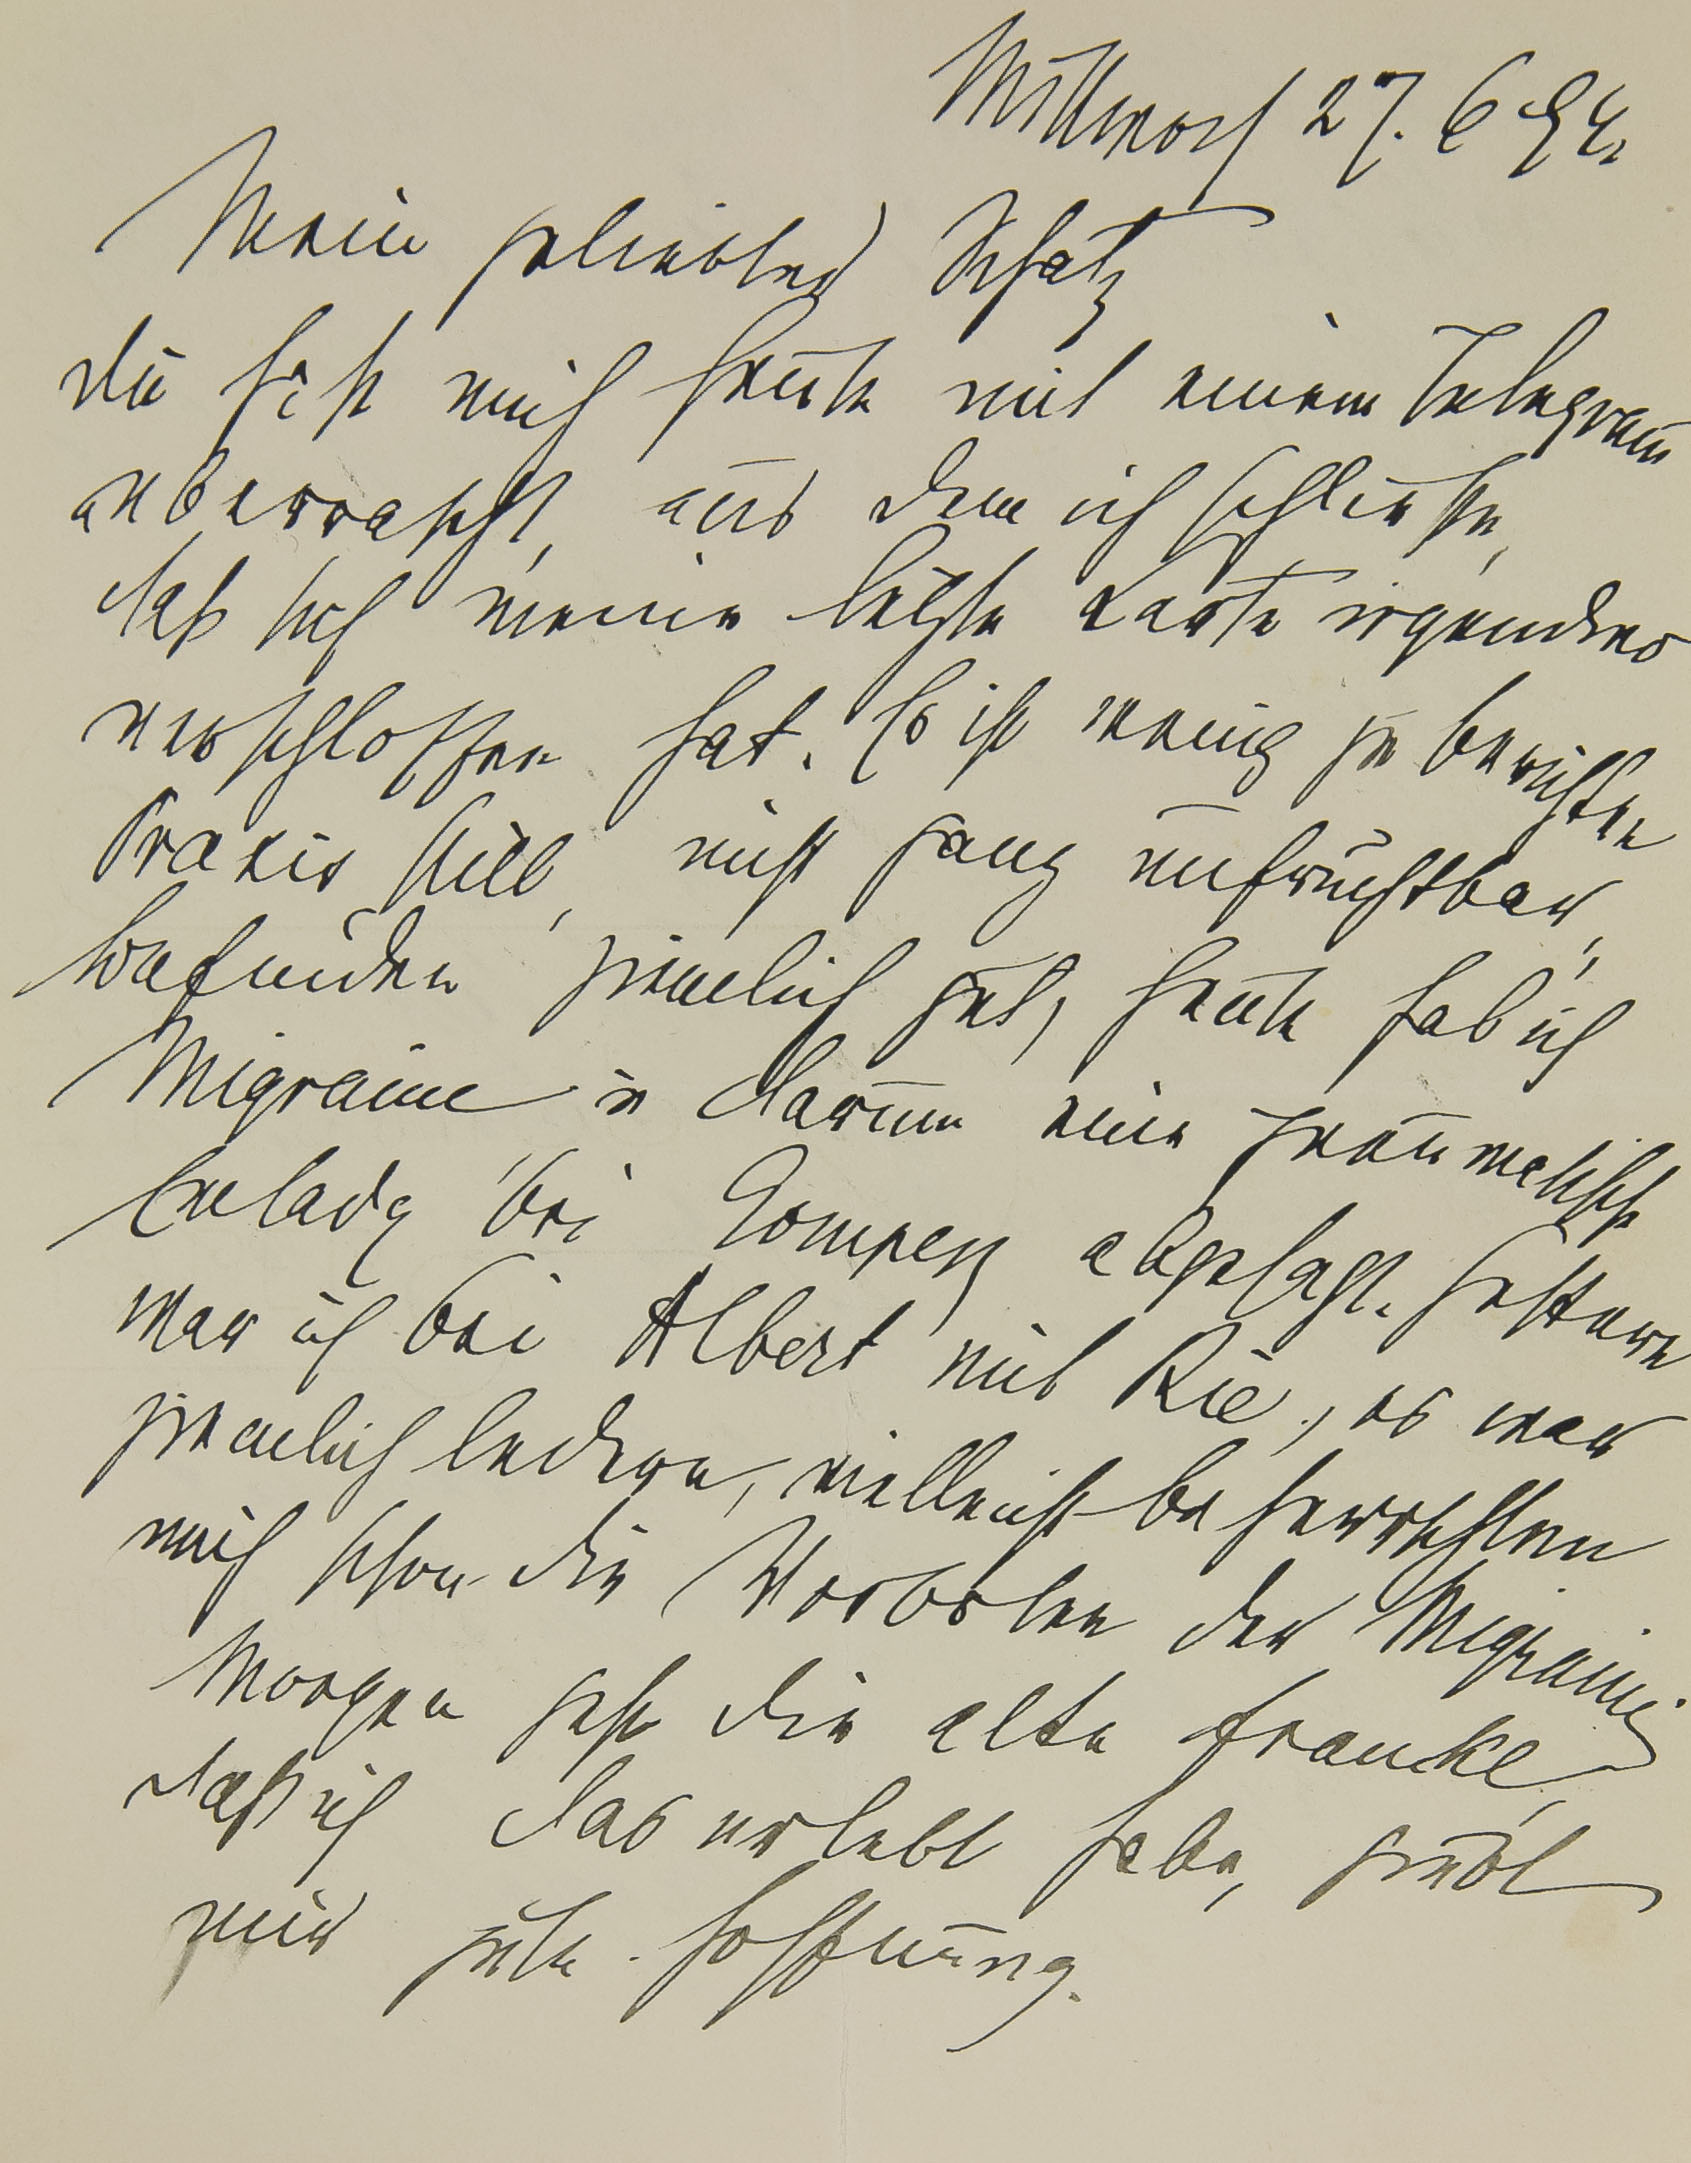 Mittwoch 27. 6 94.
Mein geliebter Schatz
Du hast mich heute mit einem Telegram
überrascht, aus dem ich schließe,
daß sich meine letzte Karte irgendwo
verschloffen hat. Es ist wenig zu berichten
Praxis still, nicht ganz unfruchtbar,
Befinden ziemlich gut, heute hab ich
Migraine u darum eine
Einladg bei Gomperz abgesagt. Gestern
war ich bei Albert mit Rie, es war
ziemlich ledern, vielleicht beherrschten
mich schon die Vorboten der Migraine
Morgen geht die alte Franke,
daß ich das erlebt habe, giebt
mir gute Hoffnung.